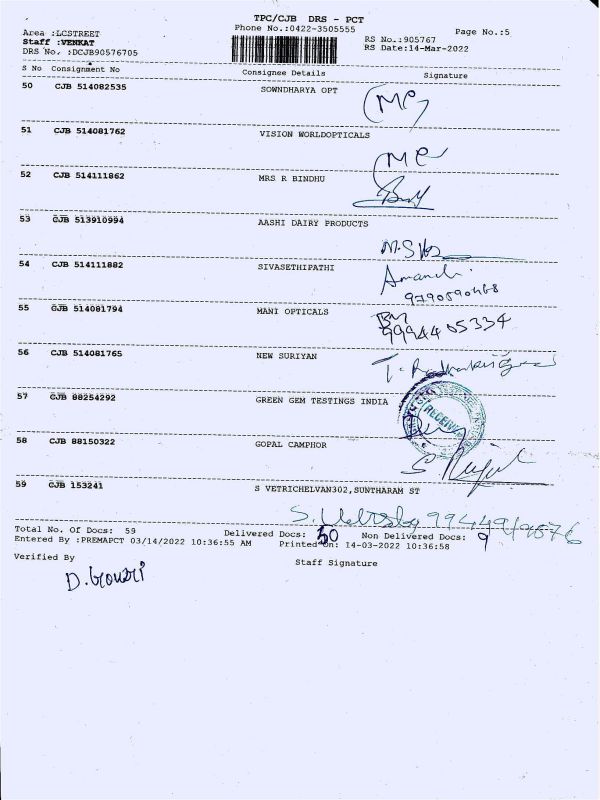 TPC/CJB DRS - PCT
Phone No.:0422-3505555
Page No.:5
Area :LCSTREET
Staff :VENKAT
DRS No. :DCJB90576705
RS No.:905767
RS Date:14-Mar-2022
S No Consignment No Consignee Details Signature
50 CJB 514082535 SOWNDHARYA OPT
51 CJB 514081762 VISION WORLDOPTICALS
52 CJB 514111862 MRS R BINDHU
53 CJB 513910994 AASHI DAIRY PRODUCTS
54 CJB 514111882 SIVASETHIPATHI
9790590468
55 CJB 514081794 MANI OPTICALS
9994405334
56 CJB 514081765 NEW SURIYAN
57 CJB 88254292 GREEN GEM TESTINGS INDIA
RECEIVED
58 CJB 88150322 GOPAL CAMPHOR
59 CJB 153241 S VETRICHELVAN302,SUNTHARAM ST
Total No. Of Docs: 59 Delivered Docs: 50 Non Delivered Docs: 9
Entered By :PREMAPCT 03/14/2022 10:36:55 AM Printed On: 14-03-2022 10:36:58
Verified By Staff Signature
D. Gowri